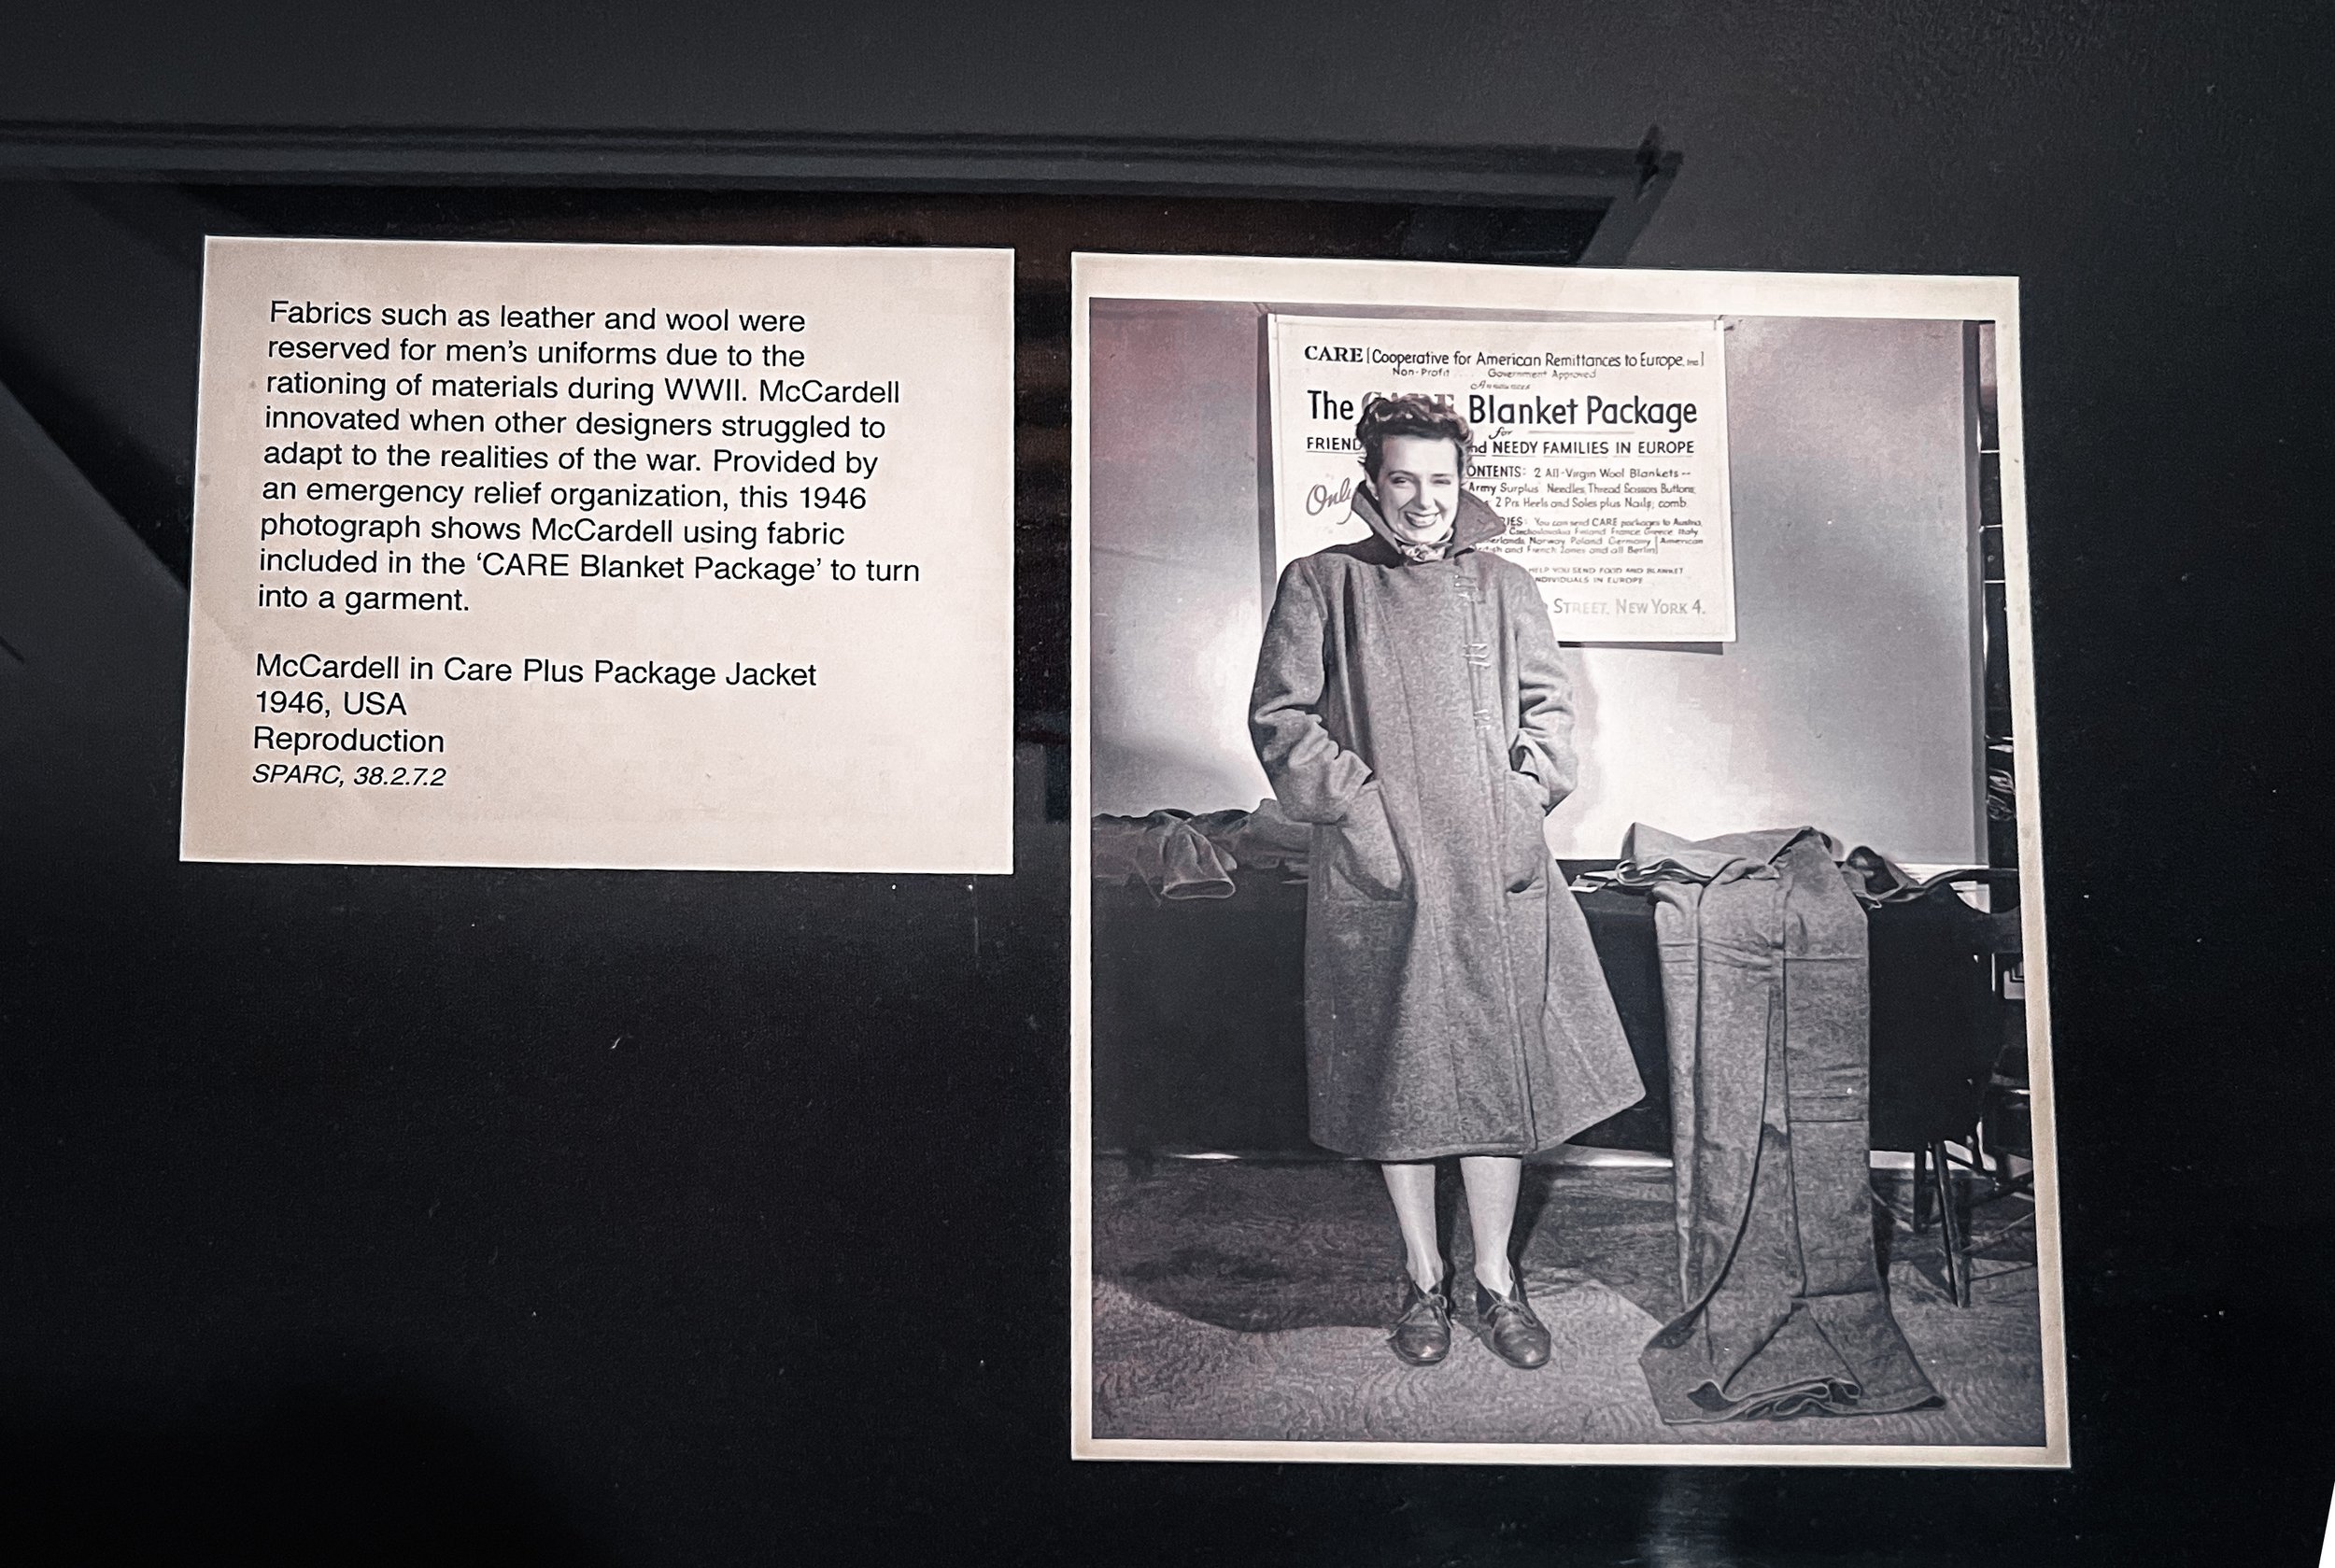 Fabrics such as leather and wool were
reserved for men's uniforms due to the
rationing of materials during WWII. McCardell
innovated when other designers struggled to
adapt to the realities of the war. Provided by
an emergency relief organization, this 1946
photograph shows McCardell using fabric
included in the ‘CARE Blanket Package’ to turn
into a garment.
McCardell in Care Plus Package Jacket
1946, USA
Reproduction
SPARC, 38.2.7.2
CARE [Cooperative for American Remittances to Europe, Inc.]
Non-Profit Government Approved
Announces
The CARE Blanket Package
for
FRIEND nd NEEDY FAMILIES IN EUROPE
ONTENTS: 2 All-Virgin Wool Blankets --
Only Army Surplus Needles, Thread Scissors Buttons,
2 Prs Heels and Soles plus Nails; comb.
IES: You can send CARE packages to Austria,
Czechoslovakia Finland France Greece Italy
erlands Norway Poland Germany [American
ish and French Zones and all Berlin]
HELP YOU SEND FOOD AND BLANKET
NDIVIDUALS IN EUROPE
STREET, NEW YORK 4.